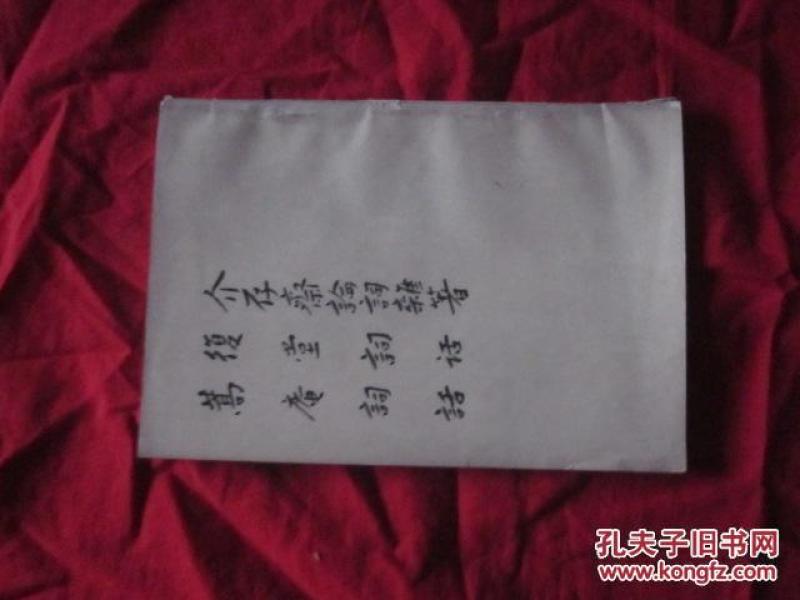 介存齋論詞雜著
復堂詞話
蒿庵詞話
孔夫子旧书网
www.kongfz.com